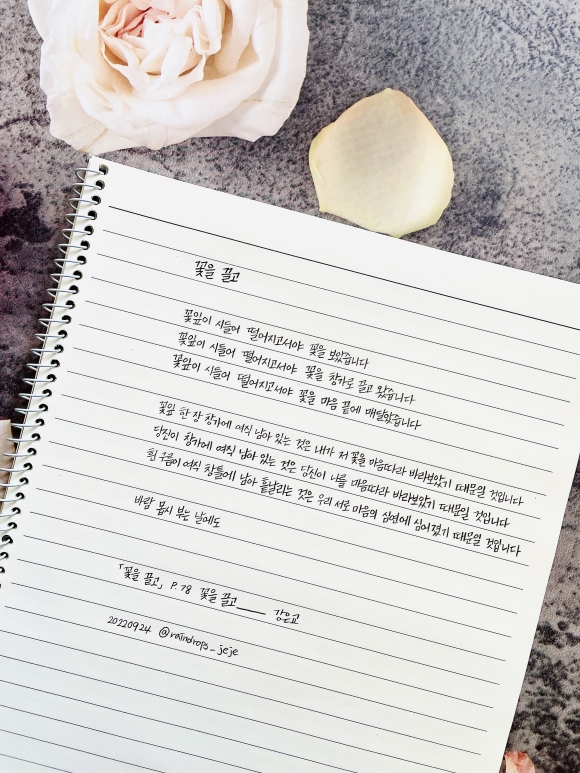 꽃을 끌고
꽃잎이 시들어 떨어지고서야 꽃을 보았습니다
꽃잎이 시들어 떨어지고서야 꽃을 창가로 끌고 왔습니다
꽃잎이 시들어 떨어지고서야 꽃을 마음 끝에 매달았습니다
꽃잎 한 장 창가에 여직 남아 있는 것은 내가 저 꽃을 마음따라 바라보았기 때문일 것입니다
당신이 창가에 여직 남아 있는 것은 당신이 나를 마음따라 바라보았기 때문일 것입니다
흰 구름이 여직 창틀에 남아 흩날리는 것은 우리 서로 마음의 심연에 심어졌기 때문일 것입니다
바람 몹시 부는 날에도
「꽃을 끌고」 P.78 꽃을 끌고 강은교
20220924 @raindrops_jeje